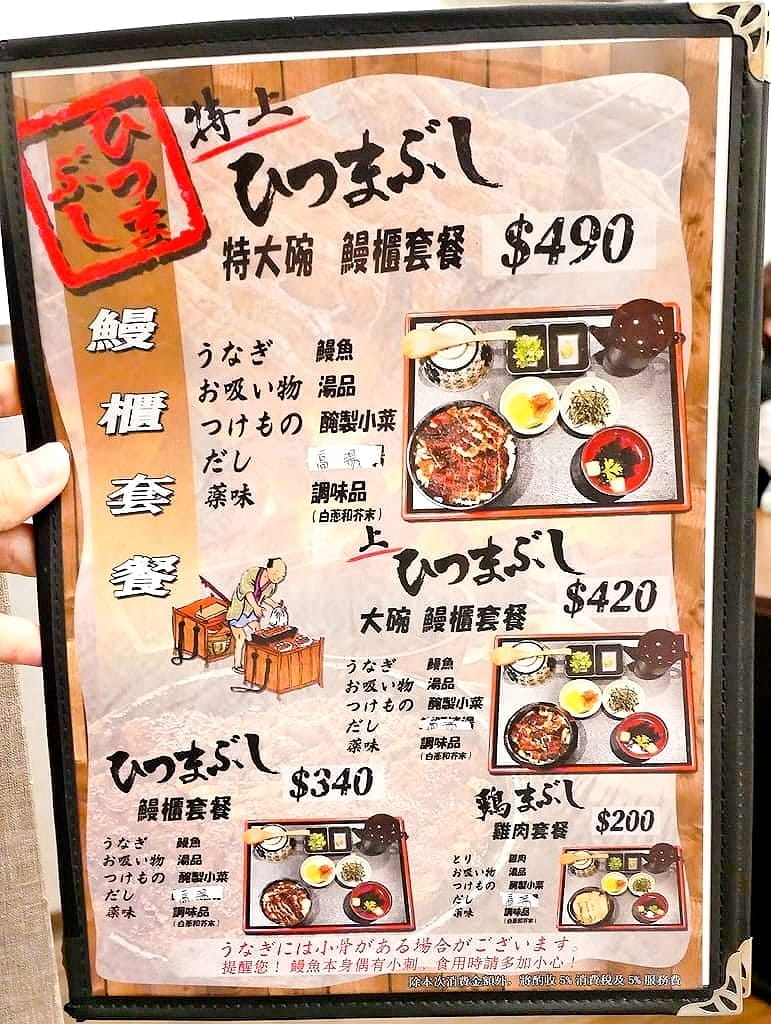 ひつま
ぶし
特上
ひつまぶし
特大碗 鰻櫃套餐 $490
鰻櫃套餐
うなぎ 鰻魚
お吸い物 湯品
つけもの 醃製小菜
だし 高湯
薬味 調味品
(白蔥和芥末)
上
ひつまぶし
大碗 鰻櫃套餐 $420
うなぎ 鰻魚
お吸い物 湯品
つけもの 醃製小菜
だし
薬味 調味品
(白蔥和芥末)
ひつまぶし
鰻櫃套餐 $340
うなぎ 鰻魚
お吸い物 湯品
つけもの 醃製小菜
だし
薬味 調味品
(白蔥和芥末)
鶏まぶし
雞肉套餐 $200
とり 雞肉
お吸い物 湯品
つけもの 醃製小菜
だし
薬味 調味品
(白蔥和芥末)
うなぎには小骨がある場合がございます。
提醒您！鰻魚本身偶有小刺、食用時請多加小心！
除本次消費金額外，將酌收 5% 消費稅及 5% 服務費